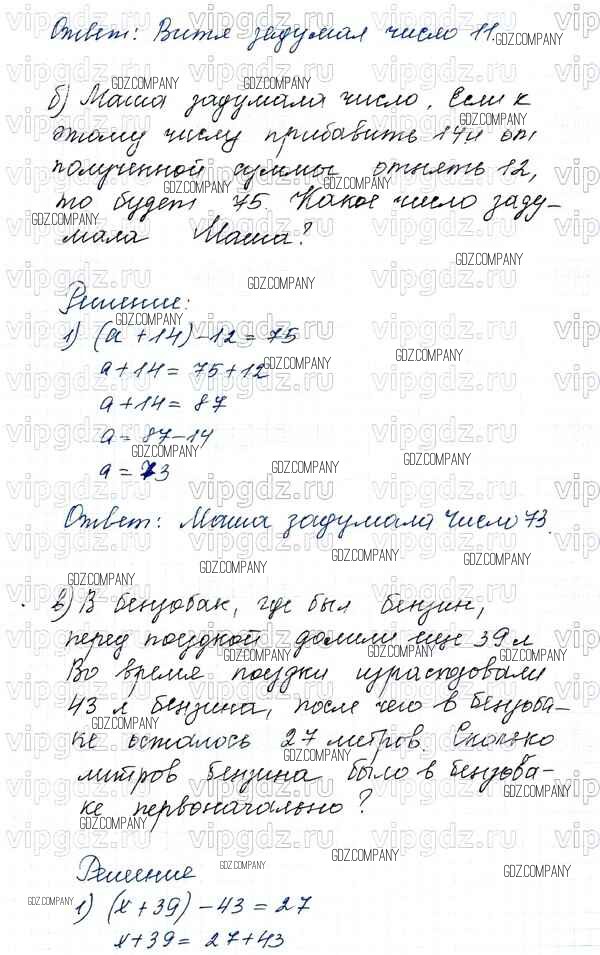 Ответ: Витя задумал число 11.
б) Маша задумала число. Если к
этому числу прибавить 14 и от
полученной суммы отнять 12,
то будет 75. Какое число заду-
мала Маша?
Решение:
1) (a + 14) - 12 = 75
a + 14 = 75 + 12
a + 14 = 87
a = 87 - 14
a = 73
Ответ: Маша задумала число 73.
в) В бензобак, где был бензин,
перед поездкой долили еще 39 л
Во время поездки израсходовали
43 л бензина, после чего в бензоба-
ке осталось 27 метров. Сколько
литров бензина было в бензоба-
ке первоначально?
Решение
1) (x + 39) - 43 = 27
x + 39 = 27 + 43